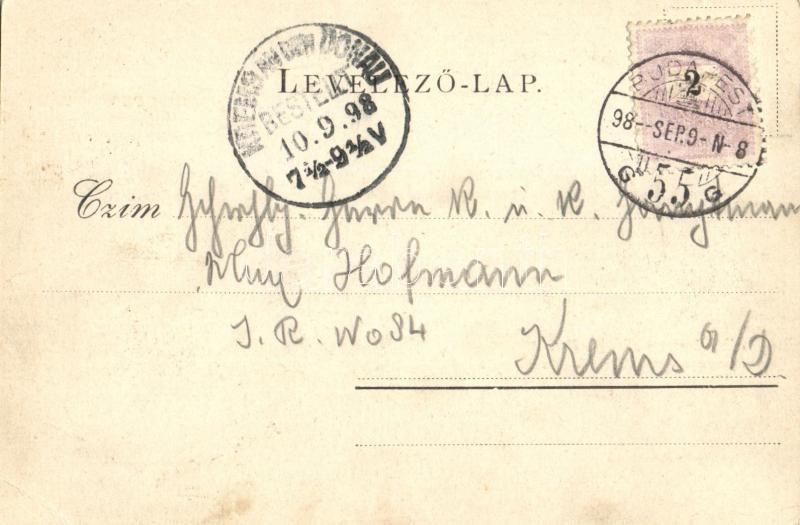 LEVELEZŐ-LAP.
AN DER DONAU
BESTELLT
10.9.98
7½-9½V
2
BUDAPEST
98--SEP.9-N-8
G 55 G
Czim Herrn K. u. K.
Hofmann
I. R. No 84
Krems a/D